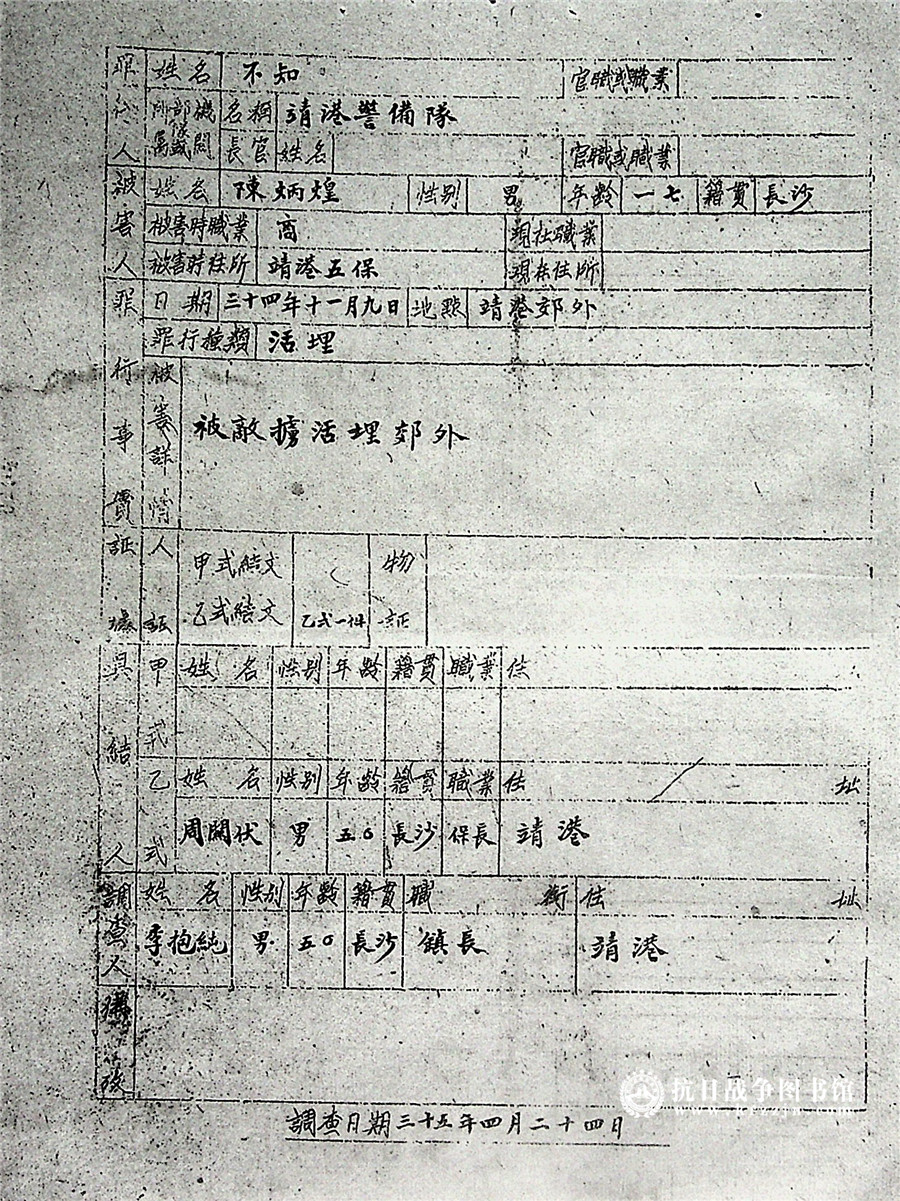 罪行人 姓名 不知 官職或職業
所屬部隊或機關 名稱 靖港警備隊
長官 姓名 官職或職業
被害人 姓名 陳炳煌 性别 男 年齡 一七 籍貫 長沙
被害時職業 商 現在職業
被害時住所 靖港五保 現在住所
罪行事實 日期 三十四年十一月九日 地點 靖港郊外
罪行種類 活埋
被害詳情 被敵擄活埋郊外
証據 人証 甲式結文 物証
乙式結文 乙式一件
具結人 甲式 姓名 性别 年齡 籍貫 職業 住
乙式 姓名 性别 年齡 籍貫 職業 住址
周開伏 男 五〇 長沙 保長 靖港
調查人 姓名 性别 年齡 籍貫 職銜 住址
李抱純 男 五〇 長沙 鎮長 靖港
備考
調查日期三十五年四月二十四日
抗日战争图书馆